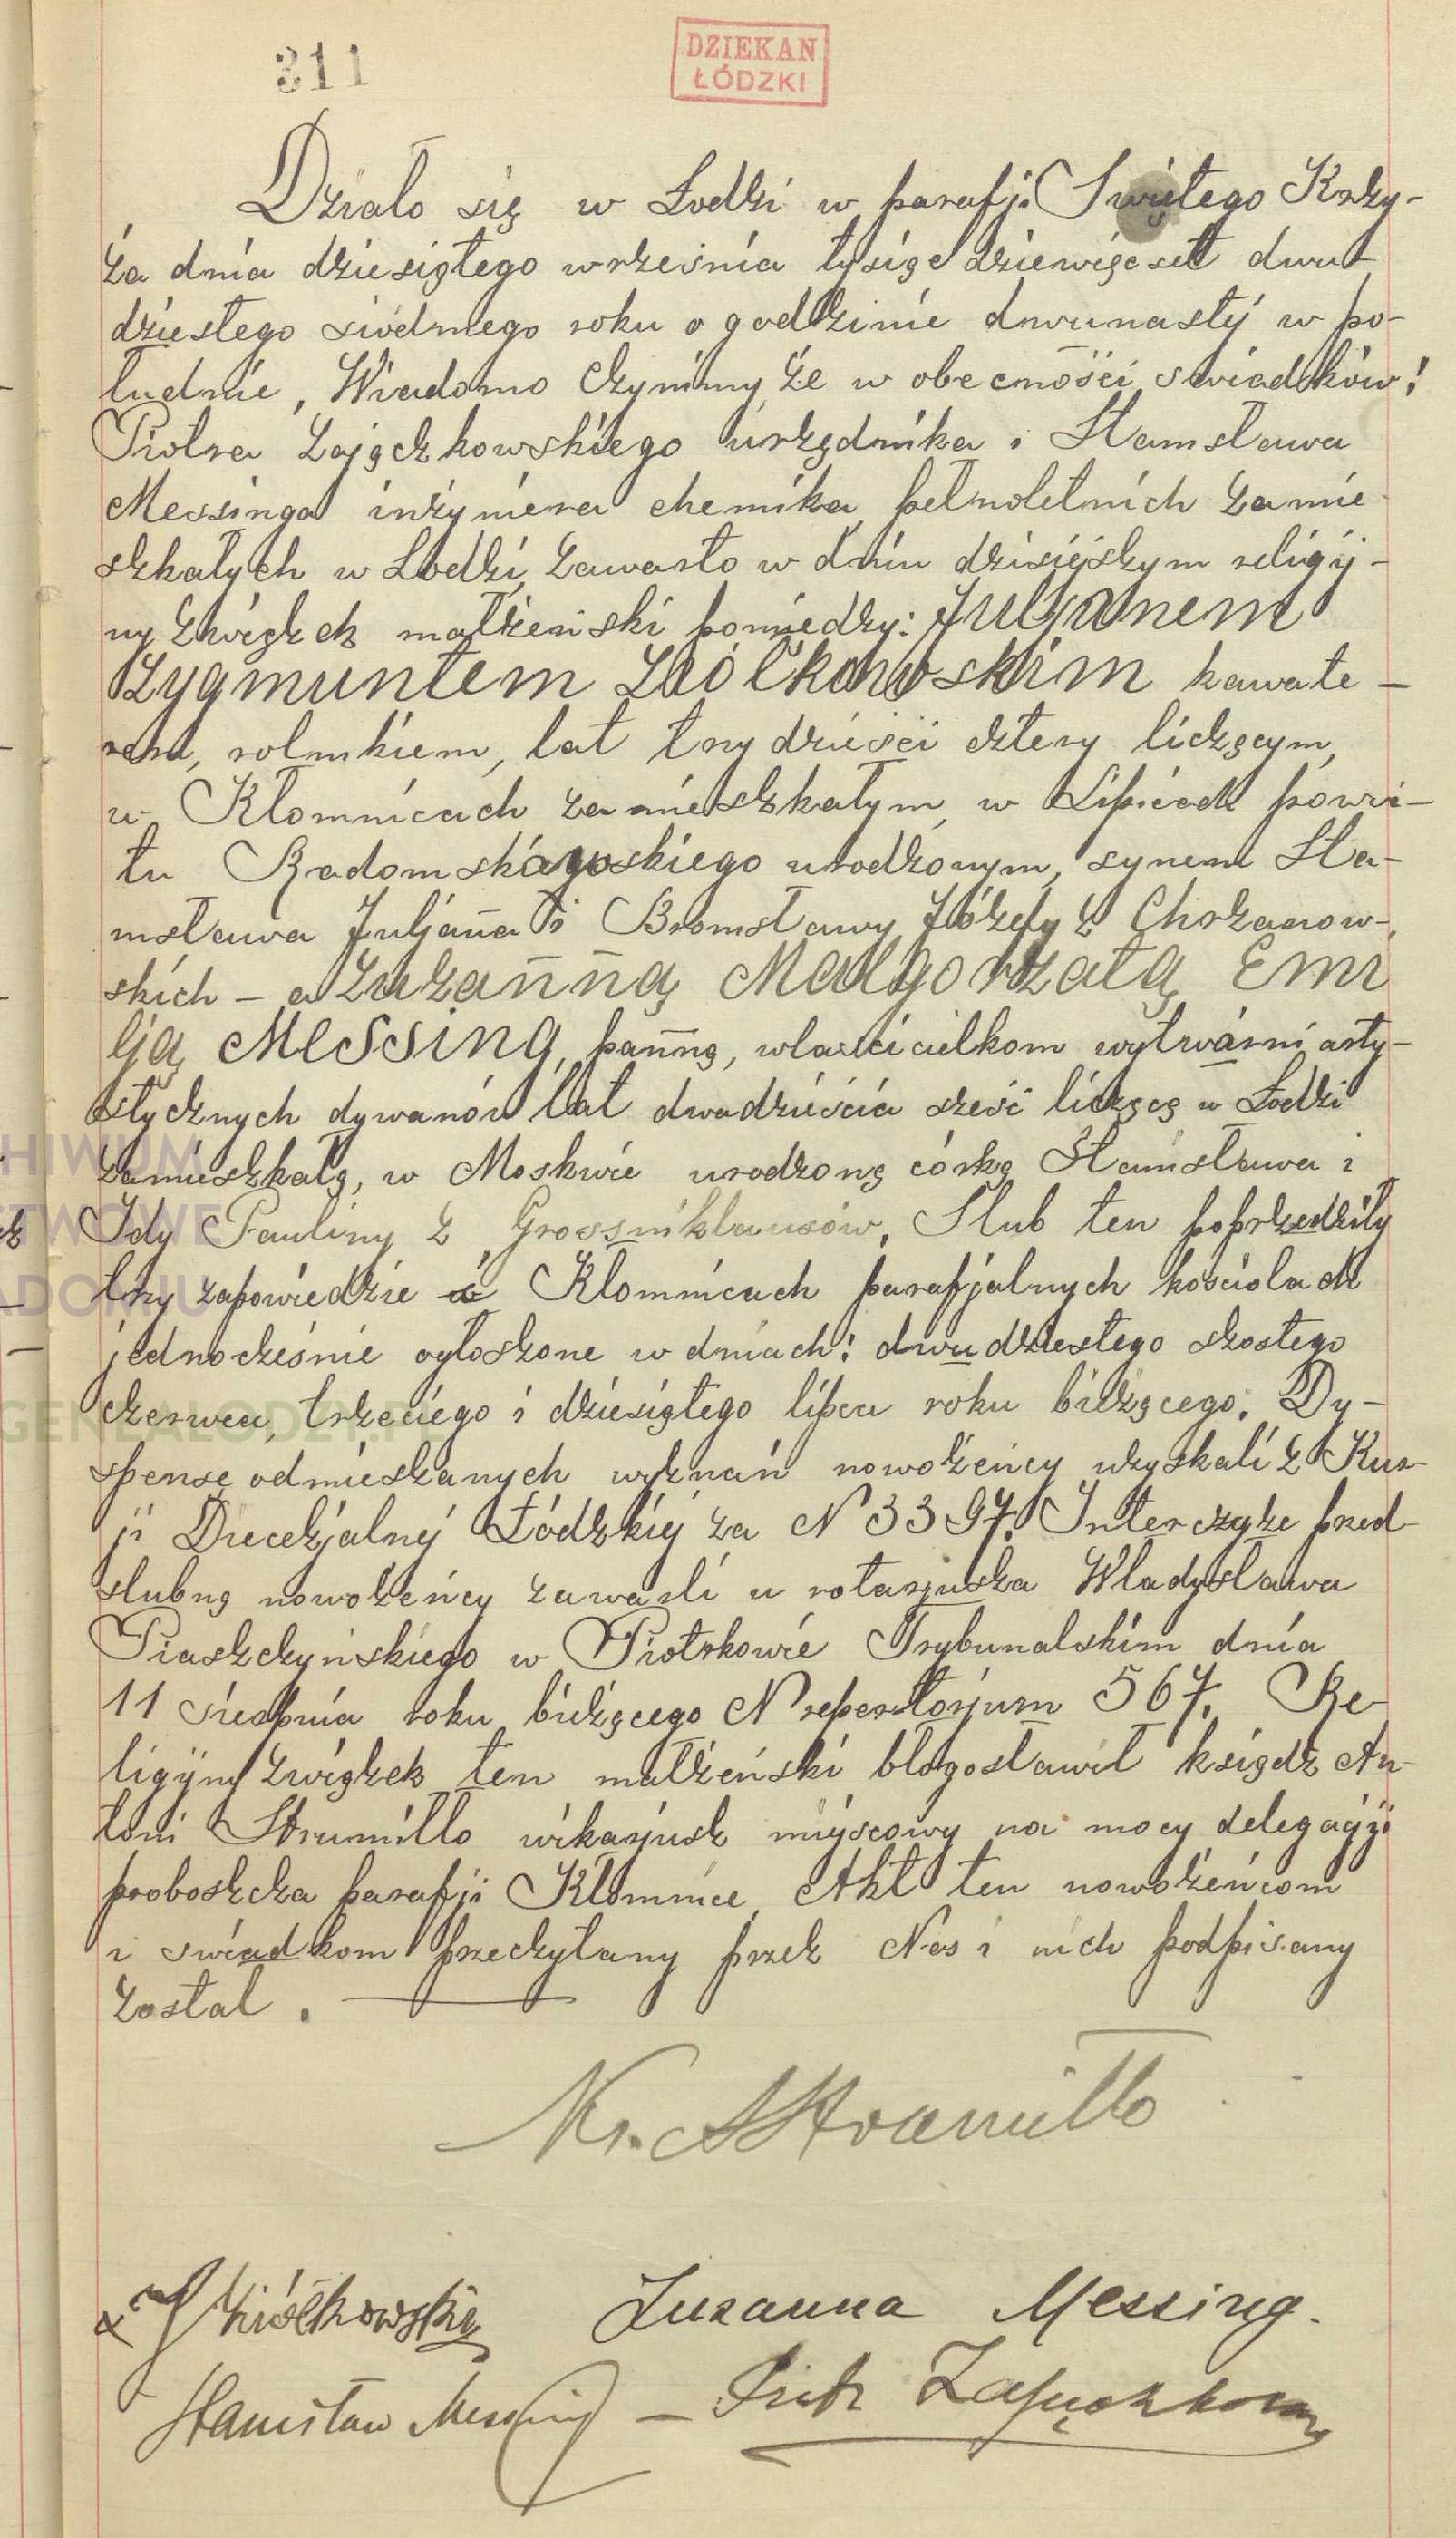 311
DZIEKAN
ŁÓDZKI
Działo się w Łodzi w parafji Świętego Krzy-
ża dnia dziesiątego września tysiąc dziewięcset dwu
dziestego siódmego roku o godzinie dwunastej w po-
łudnie, Wiadomo czynimy, że w obecności świadków:
Piotra Zajączkowskiego urzędnika i Stanisława
Messinga inżyniera chemika, pełnoletnich zamie
szkałych w Łodzi, zawarto w dniu dzisiejszym religij-
ny związek małżeński pomiędzy: Juljanem
Zygmuntem Ziółkowskim kawale-
rem, rolnikiem, lat trzydzieści cztery liczącym,
w Kłomnicach zamieszkałym, w Lipiczach powia-
tu Radomskowskiego urodzonym, synem Sta-
nisława Juljana i Bronisławy Józefy z Chrzanow-
skich - a Zuzanną Małgorzatą Emi
lją Messing, panną, właścicielkom wytwórni arty-
stycznych dywanów lat dwadzieścia sześć liczącą w Łodzi
zamieszkałą, w Moskwie urodzoną córką Stanisława i
Idy Pauliny z Grossniklausów, Ślub ten poprzedziły
trzy zapowiedzie w Kłomnicach parafjalnych kościołach
jednocześnie ogłoszone w dniach: dwudziestego szóstego
czerwca, trzeciego i dziesiątego lipca roku bieżącego. Dy-
spensę od mieszanych wyznań nowożeńcy uzyskali z Kur-
ji Diecezjalnej Łódzkiej za N 3397. Intercyzę przed
ślubną nowożeńcy zawarli u notarjusza Władysława
Piaszczyńskiego w Piotrkowie Trybunalskim dnia
11 sierpnia roku bieżącego N repertorjum 567. Re-
ligijny związek ten małżeński błogosławił ksiądz An-
toni Strumiłło wikarjusz miejscowy na mocy delegacji
proboszcza parafji Kłomnice, Akt ten nowożeńcom
i świadkom przeczytany przez Nas i nich podpisany
został.
Ks. A Strumiłło
Ziółkowski Zuzanna Messing.
Stanisław Messing — Piotr Zajączkowski